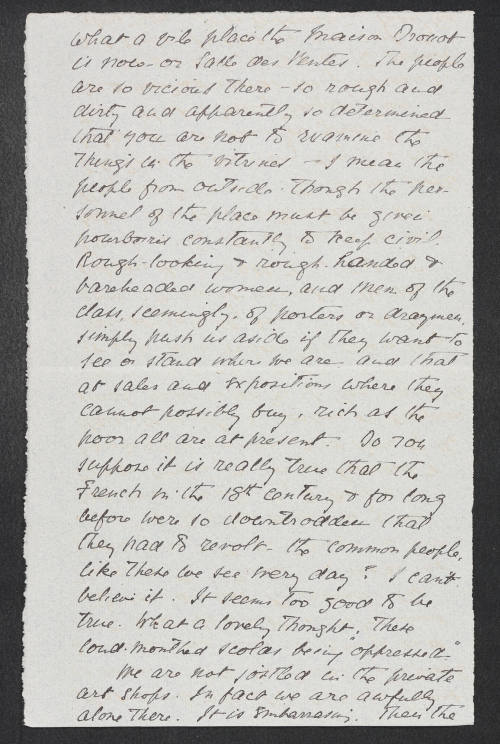 what a vile place the Maison Drouot
is now - or Salle des Ventes. The people
are so vicious there - so rough and
dirty and apparently so determined
that you are not to examine the
things in the vitrines - I mean the
people from outside. Though the per-
sonnel of the place must be given
pourboires constantly to keep civil.
Rough-looking & rough-handed &
bareheaded women, and men of the
class, seemingly, of porters or draymen,
simply push us aside if they want to
see or stand where we are and that
at sales and expositions where they
cannot possibly buy, rich as the
poor all are at present. Do you
suppose it is really true that the
French in the 18th century & for long
before were so downtrodden that
they had to revolt - the common people,
like these we see every day? I cant
believe it. It seems too good to be
true. What a lovely thought, "These
loud-mouthed scolds being oppressed."
We are not jostled in the private
art shops. In fact we are awfully
alone there. It is embarrassing. Then the